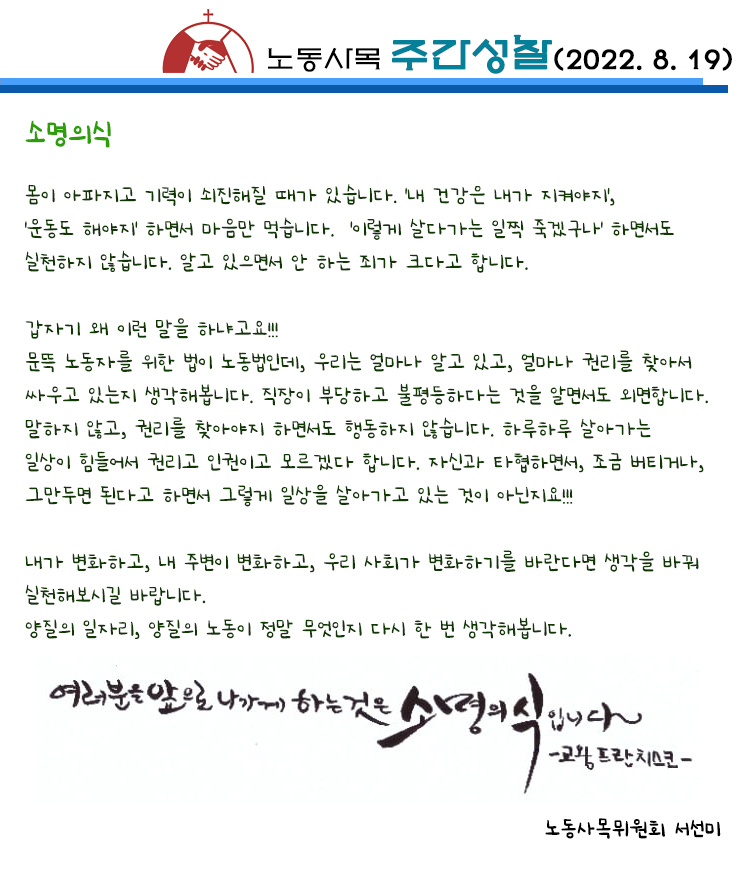 노동사목 주간성찰(2022. 8. 19)
소명의식
몸이 아파지고 기력이 쇠진해질 때가 있습니다. '내 건강은 내가 지켜야지',
'운동도 해야지' 하면서 마음만 먹습니다. '이렇게 살다가는 일찍 죽겠구나' 하면서도
실천하지 않습니다. 알고 있으면서 안 하는 죄가 크다고 합니다.
갑자기 왜 이런 말을 하냐고요!!!
문뜩 노동자를 위한 법이 노동법인데, 우리는 얼마나 알고 있고, 얼마나 권리를 찾아서
싸우고 있는지 생각해봅니다. 직장이 부당하고 불평등하다는 것을 알면서도 외면합니다.
말하지 않고, 권리를 찾아야지 하면서도 행동하지 않습니다. 하루하루 살아가는
일상이 힘들어서 권리고 인권이고 모르겠다 합니다. 자신과 타협하면서, 조금 버티거나,
그만두면 된다고 하면서 그렇게 일상을 살아가고 있는 것이 아닌지요!!!
내가 변화하고, 내 주변이 변화하고, 우리 사회가 변화하기를 바란다면 생각을 바꿔
실천해보시길 바랍니다.
양질의 일자리, 양질의 노동이 정말 무엇인지 다시 한 번 생각해봅니다.
여러분을 앞으로 나가게 하는것은 소명의식입니다
-교황 프란치스코-
노동사목위원회 서선미